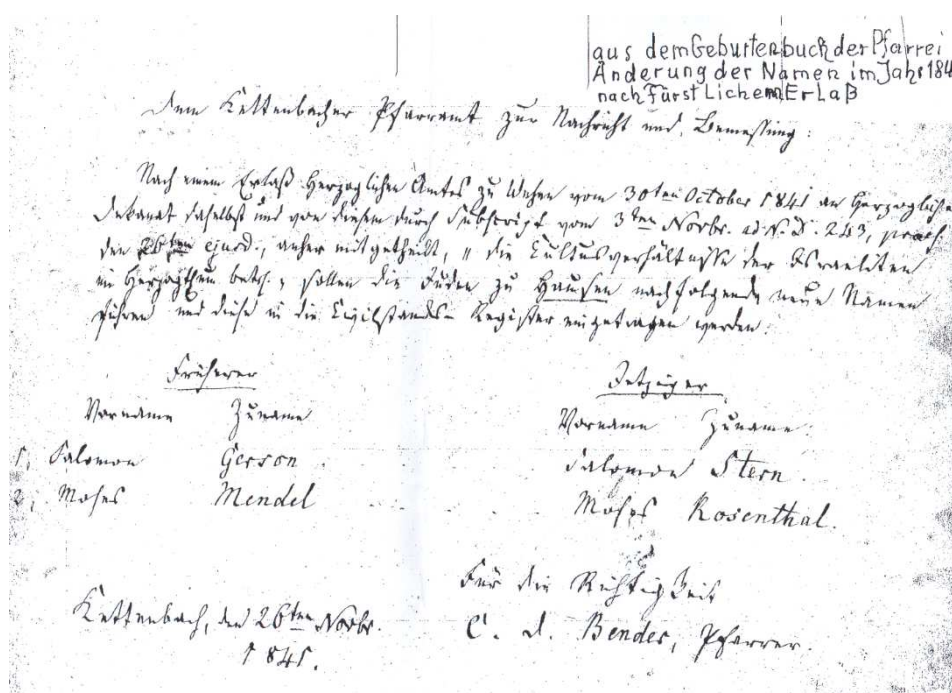 aus dem Geburtenbuch der Pfarrei
Änderung der Namen im Jahr 184
nach Fürstlichem Erlaß
Dem Kettenbacher Pfarramt zur Nachricht und Bemessung:
Nach einem Erlaß Herzoglichen Amtes zu Wehen vom 30ten October 1841 an Herzogliches
Dekanat daselbst und von diesem durch Subscript vom 3ten Novbr. ad N. D. 243, praes.
den 26ten ejusd., anher mitgetheilt, "die Cultusverhältnisse der Israeliten
im Herzogthum betr., sollen die Juden zu Hausen nachfolgende neue Namen
führen und diese in die Civilstands-Register eingetragen werden:
Früherer
Jetziger
Vorname Zuname
Vorname Zuname.
1, Salomon Gerson
Salomon Stern.
2, Moses Mendel
Moses Rosenthal.
Für die Richtigkeit
Kettenbach, den 26ten Novbr.
1841.
C. d. Bender, Pfarrer.